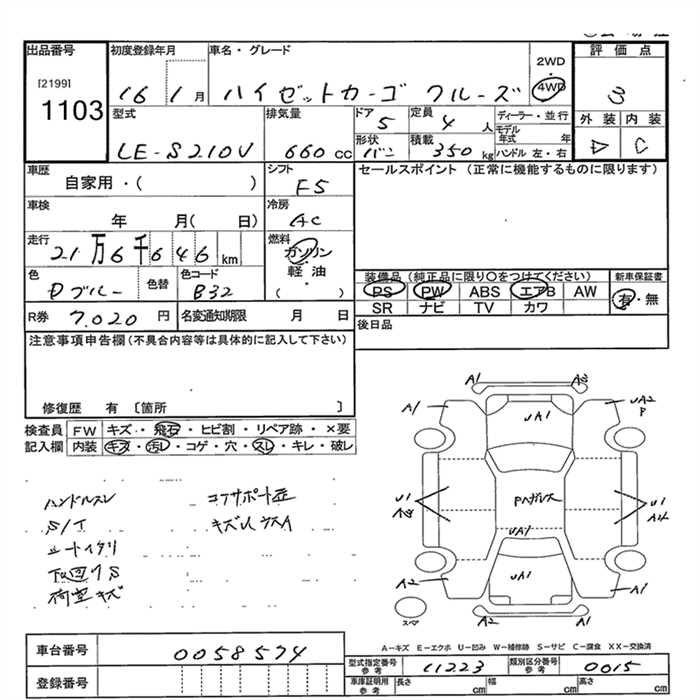 出品番号
[2199]
1103
初度登録年月
16 1月
車名・グレード
ハイゼットカーゴ クルーズ
2WD
・
4WD
評価点
3
外装 内装
D C
型式
LE-S210V
排気量
660 cc
ドア
5
定員
4人
ディーラー・並行
モデル年式 年
形状
バン
積載
350 kg
ハンドル 左・右
車歴
自家用・( )
シフト
F5
セールスポイント (正常に機能するものに限ります)
車検
年 月( 日)
冷房
AC
走行
21万6千646 km
燃料
ガソリン
・
軽油
( )
色
Dブルー
色替
色コード
B32
装備品 (純正品に限り○をつけてください)
PS PW ABS エアB AW
SR ナビ TV カワ
新車保証書
有・無
R券 7,020 円
名変通知期限 月 日
後日品
注意事項申告欄(不具合内容等は具体的に記入して下さい)
修復歴 有〔箇所 〕
検査員
記入欄
FW キズ・飛石・ヒビ割・リペア跡・×要
内装 キズ・汚レ・コゲ・穴・スレ・キレ・破レ
ハンドルスレ
S/イ
シートイタリ
下回リS
荷室キズ
コアサポート歪
キズU ウスA
A1 A2
A1 UA1 UA2 P
U1 Pハガレス U1
UA1
UA1
A2 A1
A2 A1
スペア
A-キズ E-エクボ U-凹み W-補修跡 S-サビ C-腐食 XX-交換済
車台番号 0058574
登録番号
型式指定番号 参考 11223
類別区分番号 参考 0015
車庫証明用 参考 長さ cm 幅 cm 高さ cm